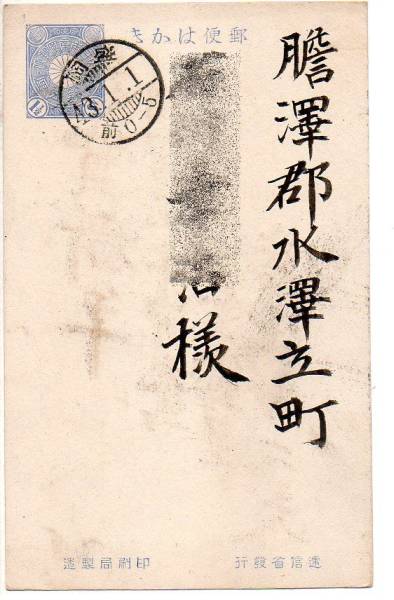 郵便はかき
1½
43.1.1
前0-5
膽澤郡水澤立町
様
遞信省發行
印刷局製造